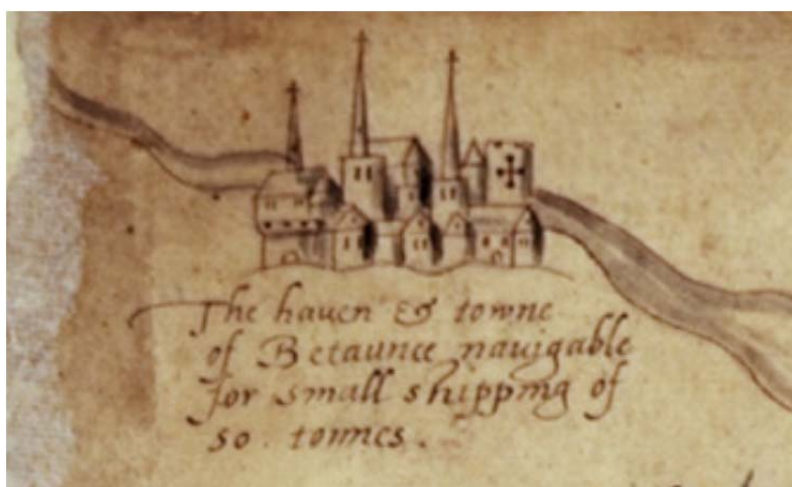 The haven & towne
of Betaunce navigable
for small shipping of
50. tonnes.